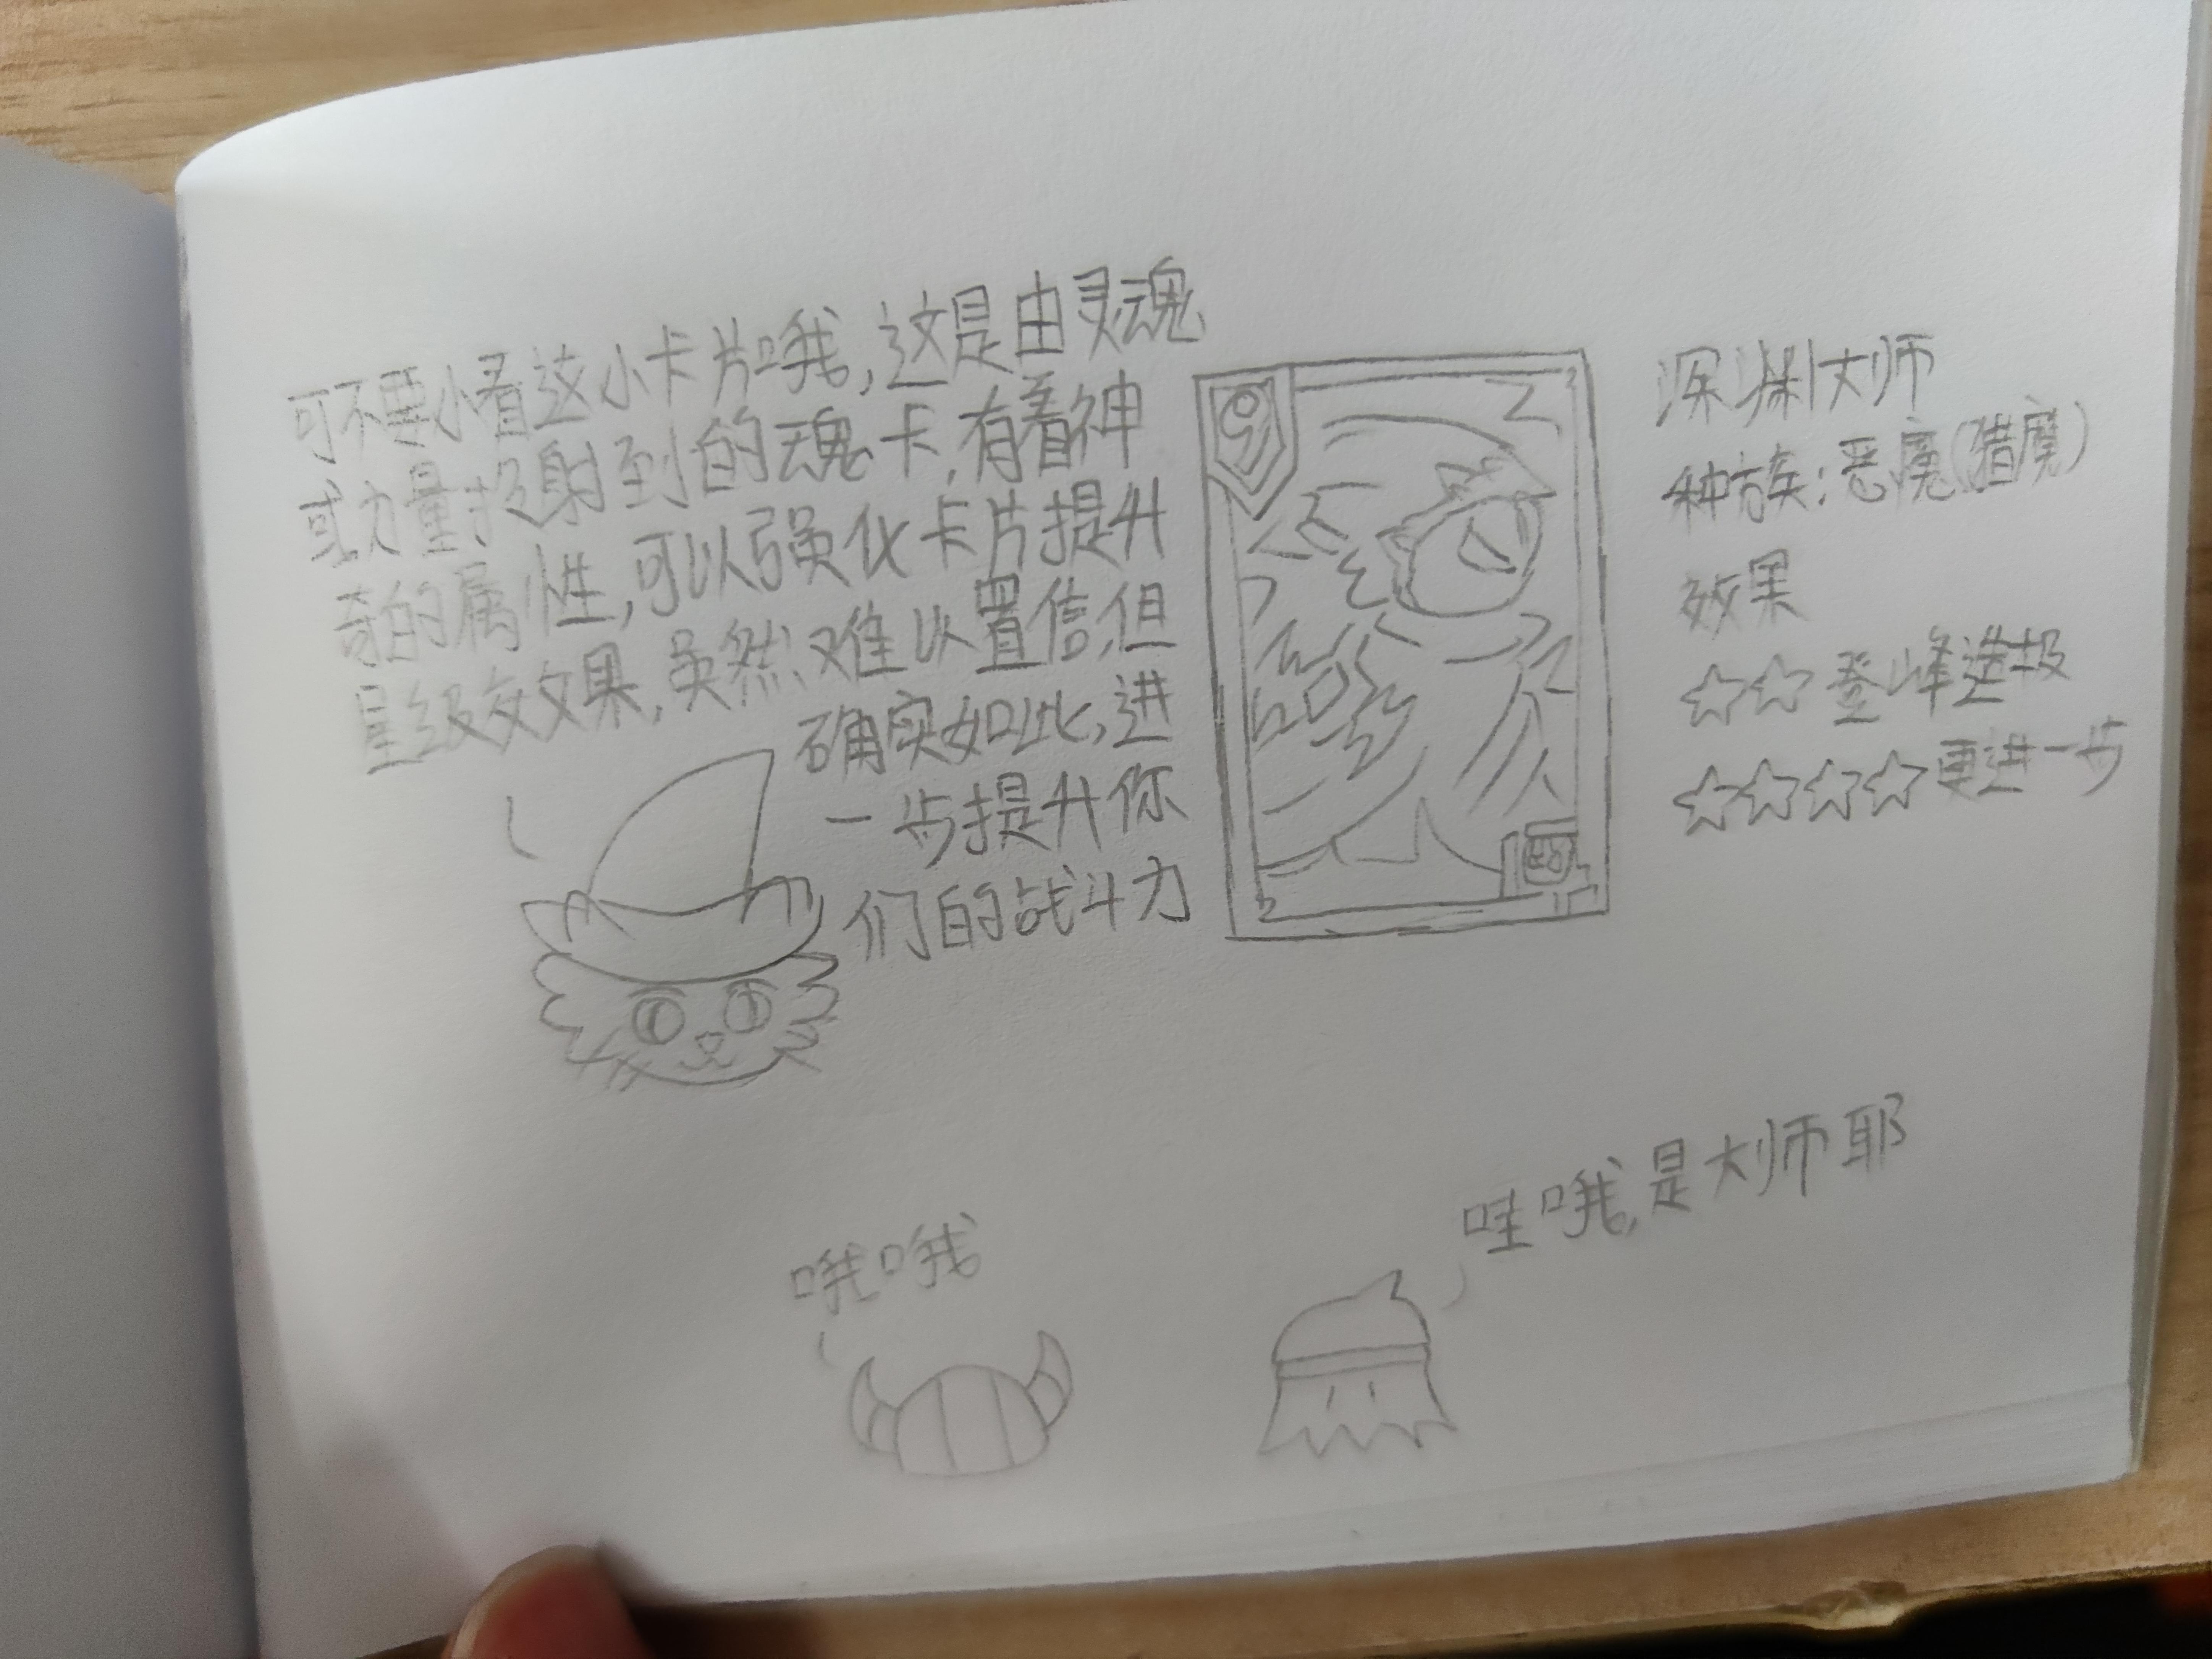 可不要小看这小卡片哦,这是由灵魂
或力量投射到的魂卡,有着神
奇的属性,可以强化卡片提升
星级效果,虽然难以置信,但
确实如此,进
一步提升你
们的战斗力
深渊大师
种族:恶魔(猎魔)
效果
☆☆登峰造极
☆☆☆☆更进一步
哦哦
哇哦,是大师耶